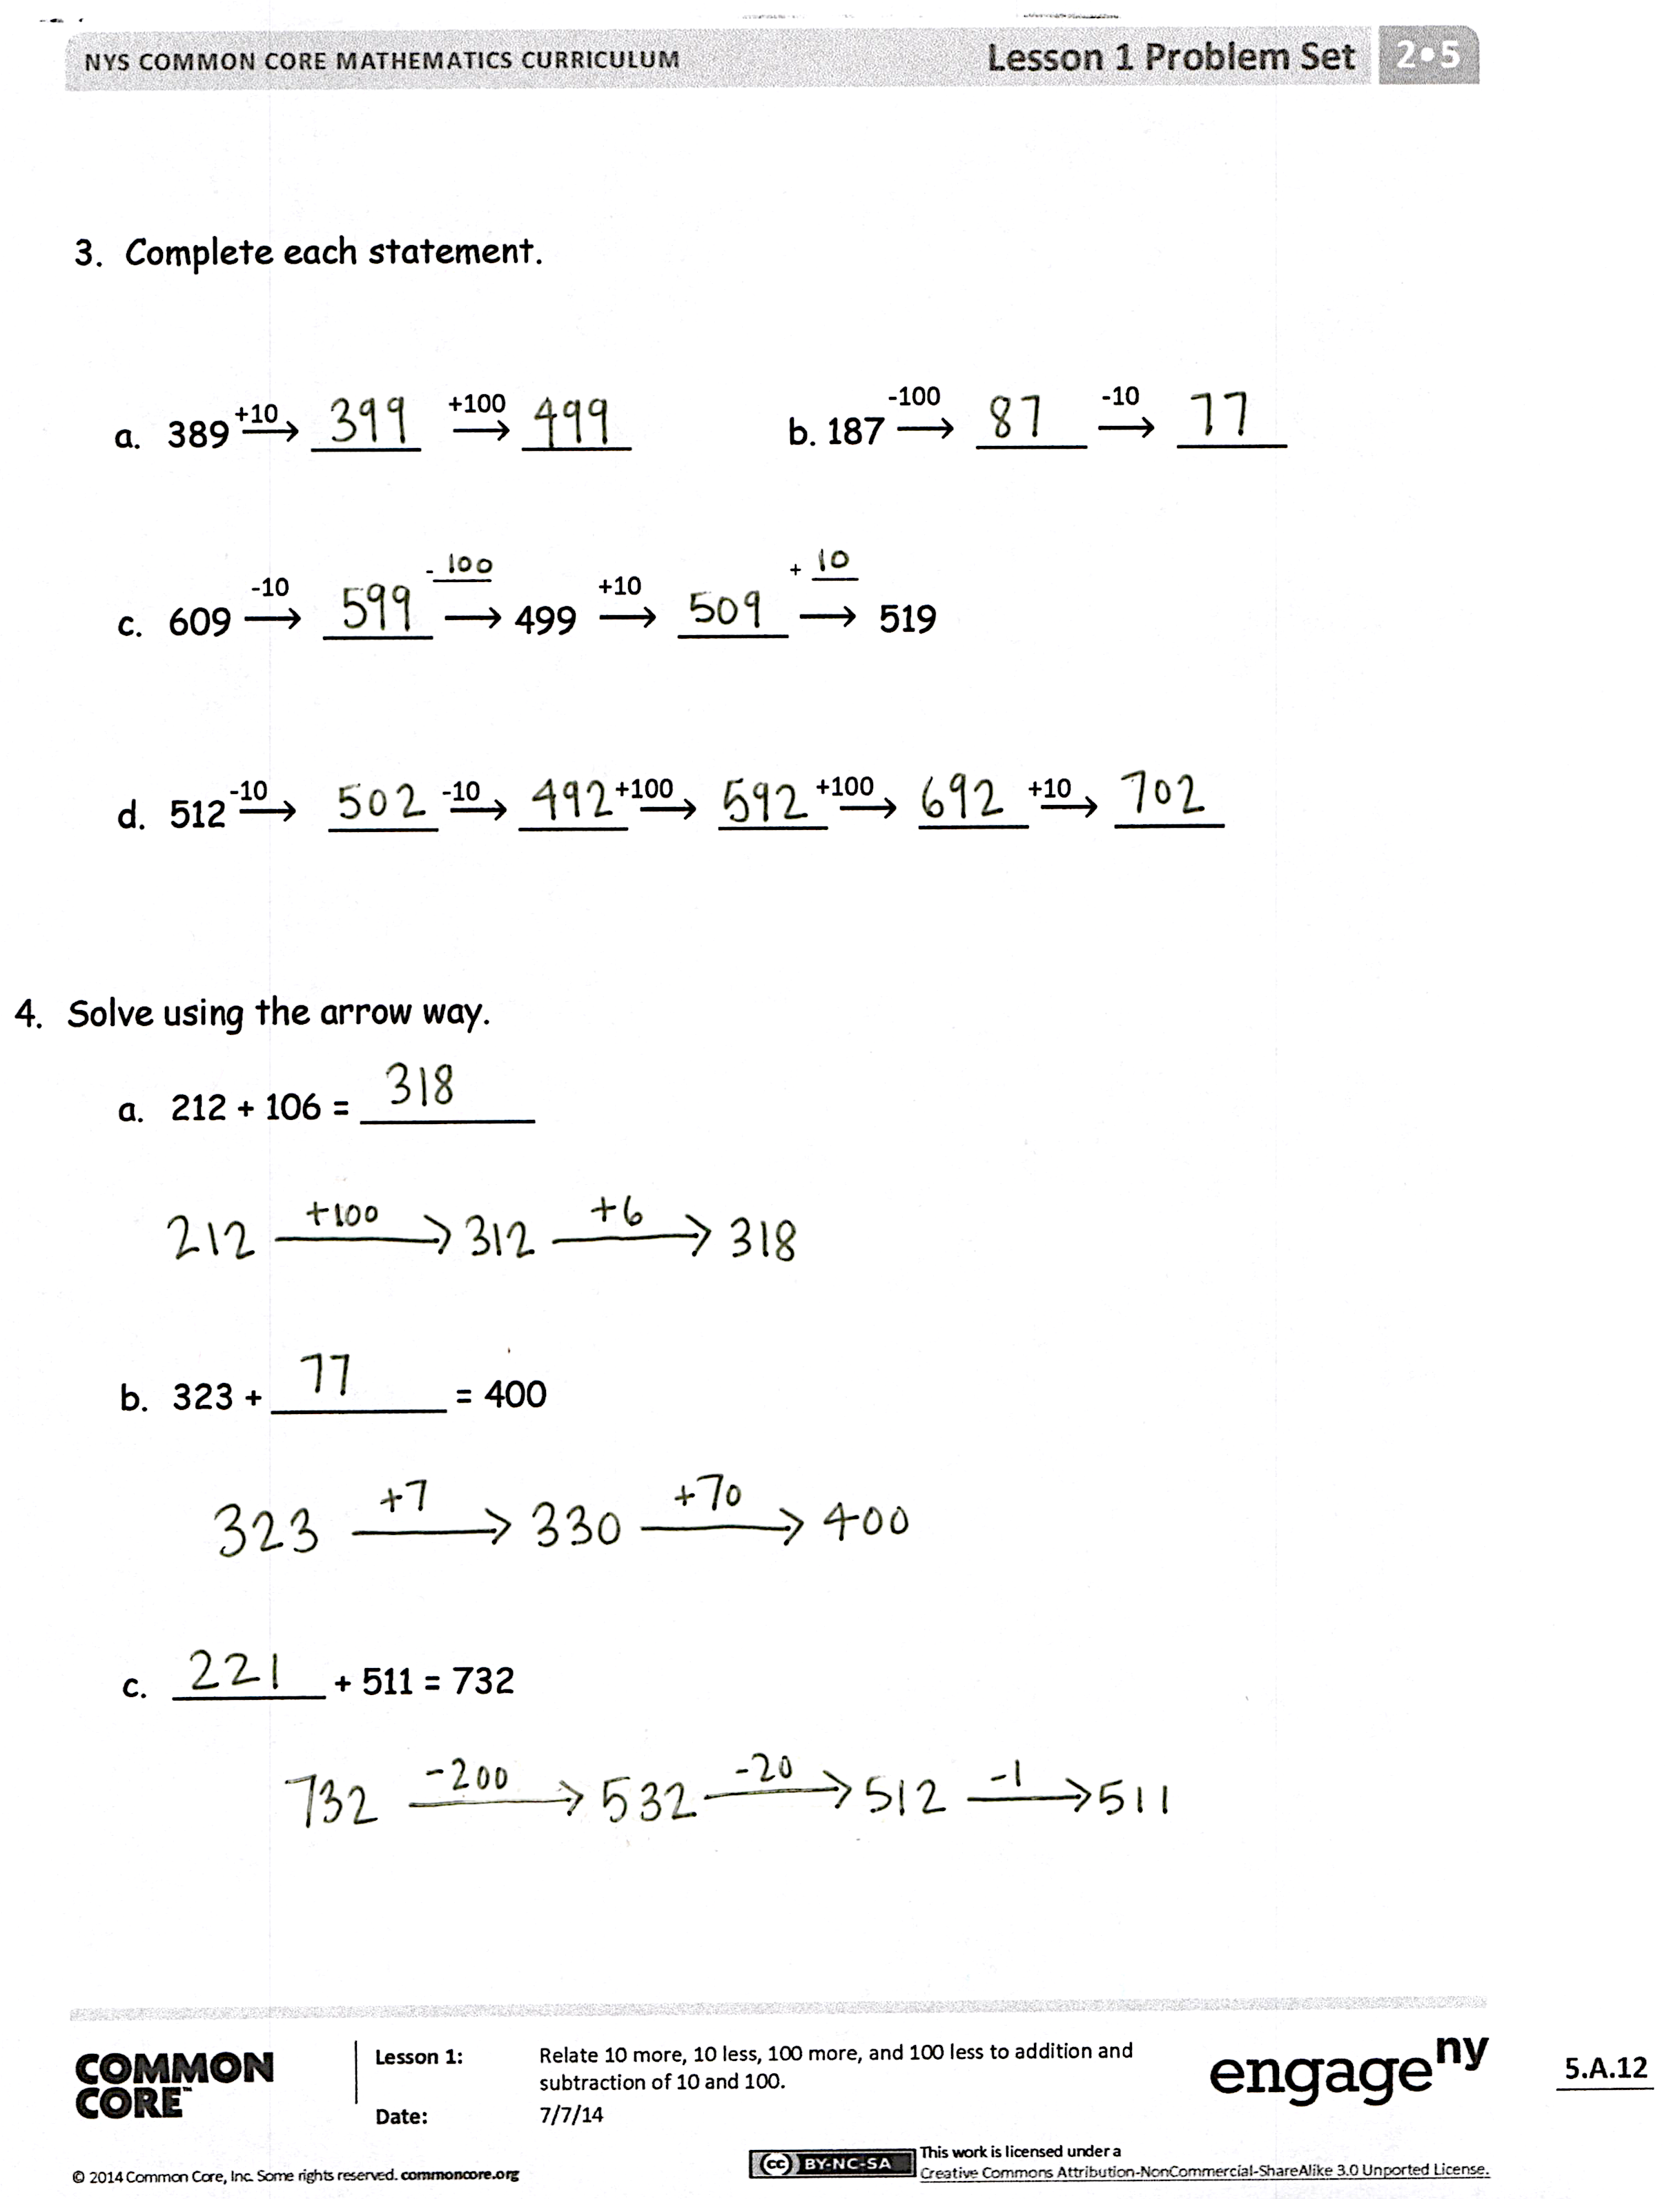 NYS COMMON CORE MATHEMATICS CURRICULUM Lesson 1 Problem Set 2•5
3. Complete each statement.
a. 389 +10 → 399 +100 → 499 b. 187 -100 → 87 -10 → 77
c. 609 -10 → 599 - 100 → 499 +10 → 509 + 10 → 519
d. 512 -10 → 502 -10 → 492 +100 → 592 +100 → 692 +10 → 702
4. Solve using the arrow way.
a. 212 + 106 = 318
212 +100 → 312 +6 → 318
b. 323 + 77 = 400
323 +7 → 330 +70 → 400
c. 221 + 511 = 732
732 -200 → 532 -20 → 512 -1 → 511
COMMON
CORE™
Lesson 1: Relate 10 more, 10 less, 100 more, and 100 less to addition and
subtraction of 10 and 100.
Date: 7/7/14
engage ny
5.A.12
© 2014 Common Core, Inc. Some rights reserved. commoncore.org
cc BY-NC-SA
This work is licensed under a
Creative Commons Attribution-NonCommercial-ShareAlike 3.0 Unported License.